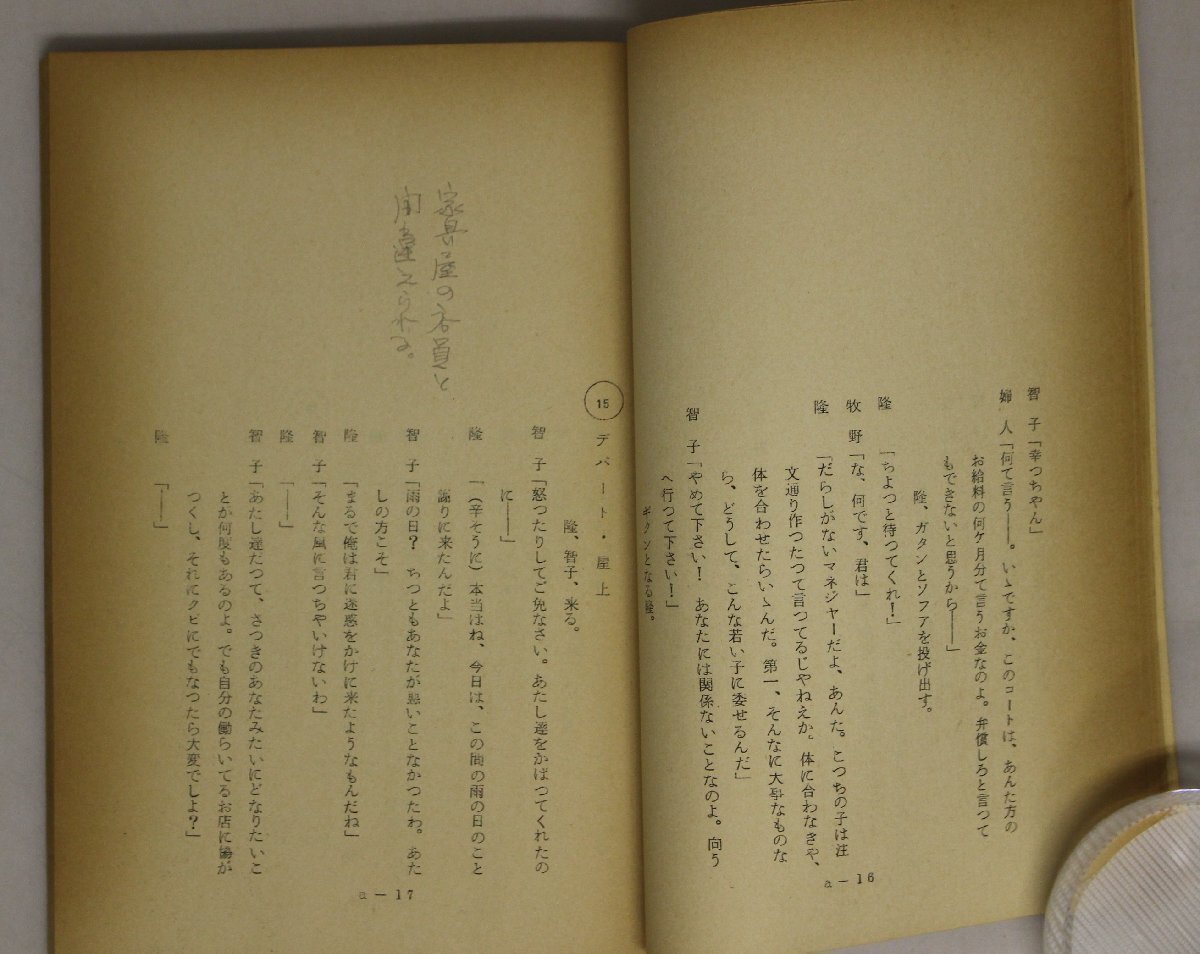 智子「幸つちやん」
婦人「何て言う――。いゝですか、このコートは、あんた方の
お給料の何ケ月分て言うお金なのよ。弁償しろと言つて
もできないと思うから――」
隆、ガタンとソフアを投げ出す。
隆「ちよつと待つてくれ！」
牧野「な、何です、君は」
隆「だらしがないマネジヤーだよ、あんた。こつちの子は注
文通り作つたつて言つてるじやねえか。体に合わなきや、
体を合わせたらいゝんだ。第一、そんなに大事なものな
ら、どうして、こんな若い子に委せるんだ」
智子「やめて下さい！　あなたには関係ないことなのよ。向う
へ行つて下さい！」
ギクンとなる隆。
a－16
家具屋の客員と
間違えられる。
15
デパート・屋上
隆、智子、来る。
智子「怒つたりしてご免なさい。あたし達をかばつてくれたの
に――」
隆「（辛そうに）本当はね、今日は、この間の雨の日のこと
謝りに来たんだよ」
智子「雨の日？　ちつともあなたが悪いことなかつたわ。あた
しの方こそ」
隆「まるで俺は君に迷惑をかけに来たようなもんだね」
智子「そんな風に言つちやいけないわ」
隆「――」
智子「あたし達だつて、さつきのあなたみたいにどなりたいこ
とが何度もあるのよ。でも自分の働らいてるお店に傷が
つくし、それにクビにでもなつたら大変でしよ？」
隆「――」
a－17